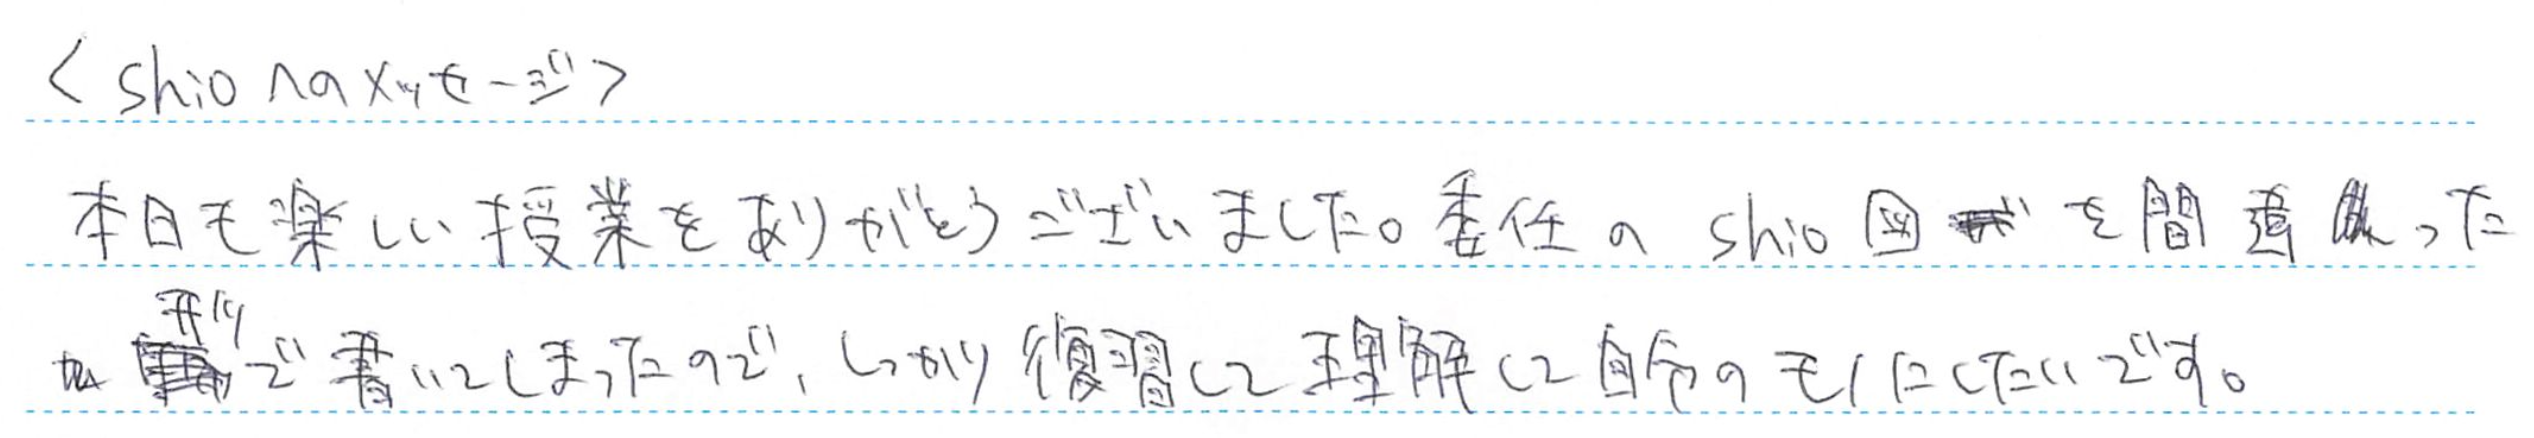 <shioへのメッセージ>
本日も楽しい授業をありがとうございました。委任のshio図を間違った
形で書いてしまったので、しっかり復習して理解して自分のモノにしたいです。